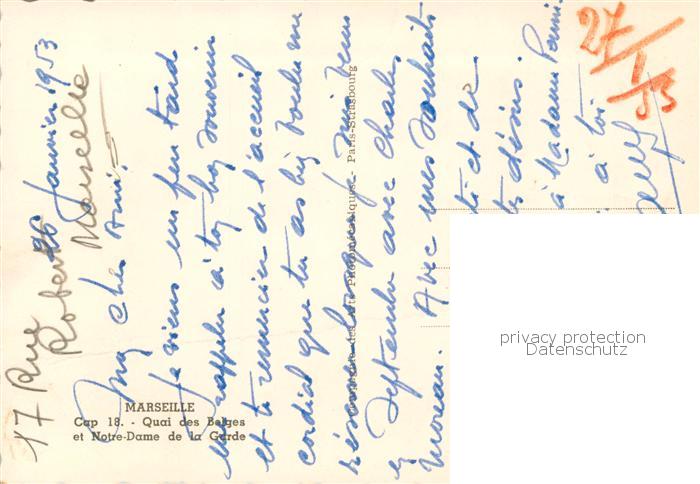 17 Rue
Roberts
Marseille
26 Janvier 1953
Mon cher Ami.
Je viens un peu tard
me rappeler à ton bon souvenir
et te remercier de l'accueil
cordial que tu as bien voulu me
réserver lorsque je suis venu
en Septembre avec Charles
Moreau. Avec mes souhaits
té et de
ts désirs.
à Madame
à toi
27/1/53
MARSEILLE
Cap 18. - Quai des Belges
et Notre-Dame de la Garde
Compagnie des Arts Photomécaniques - Paris-Strasbourg
privacy protection
Datenschutz